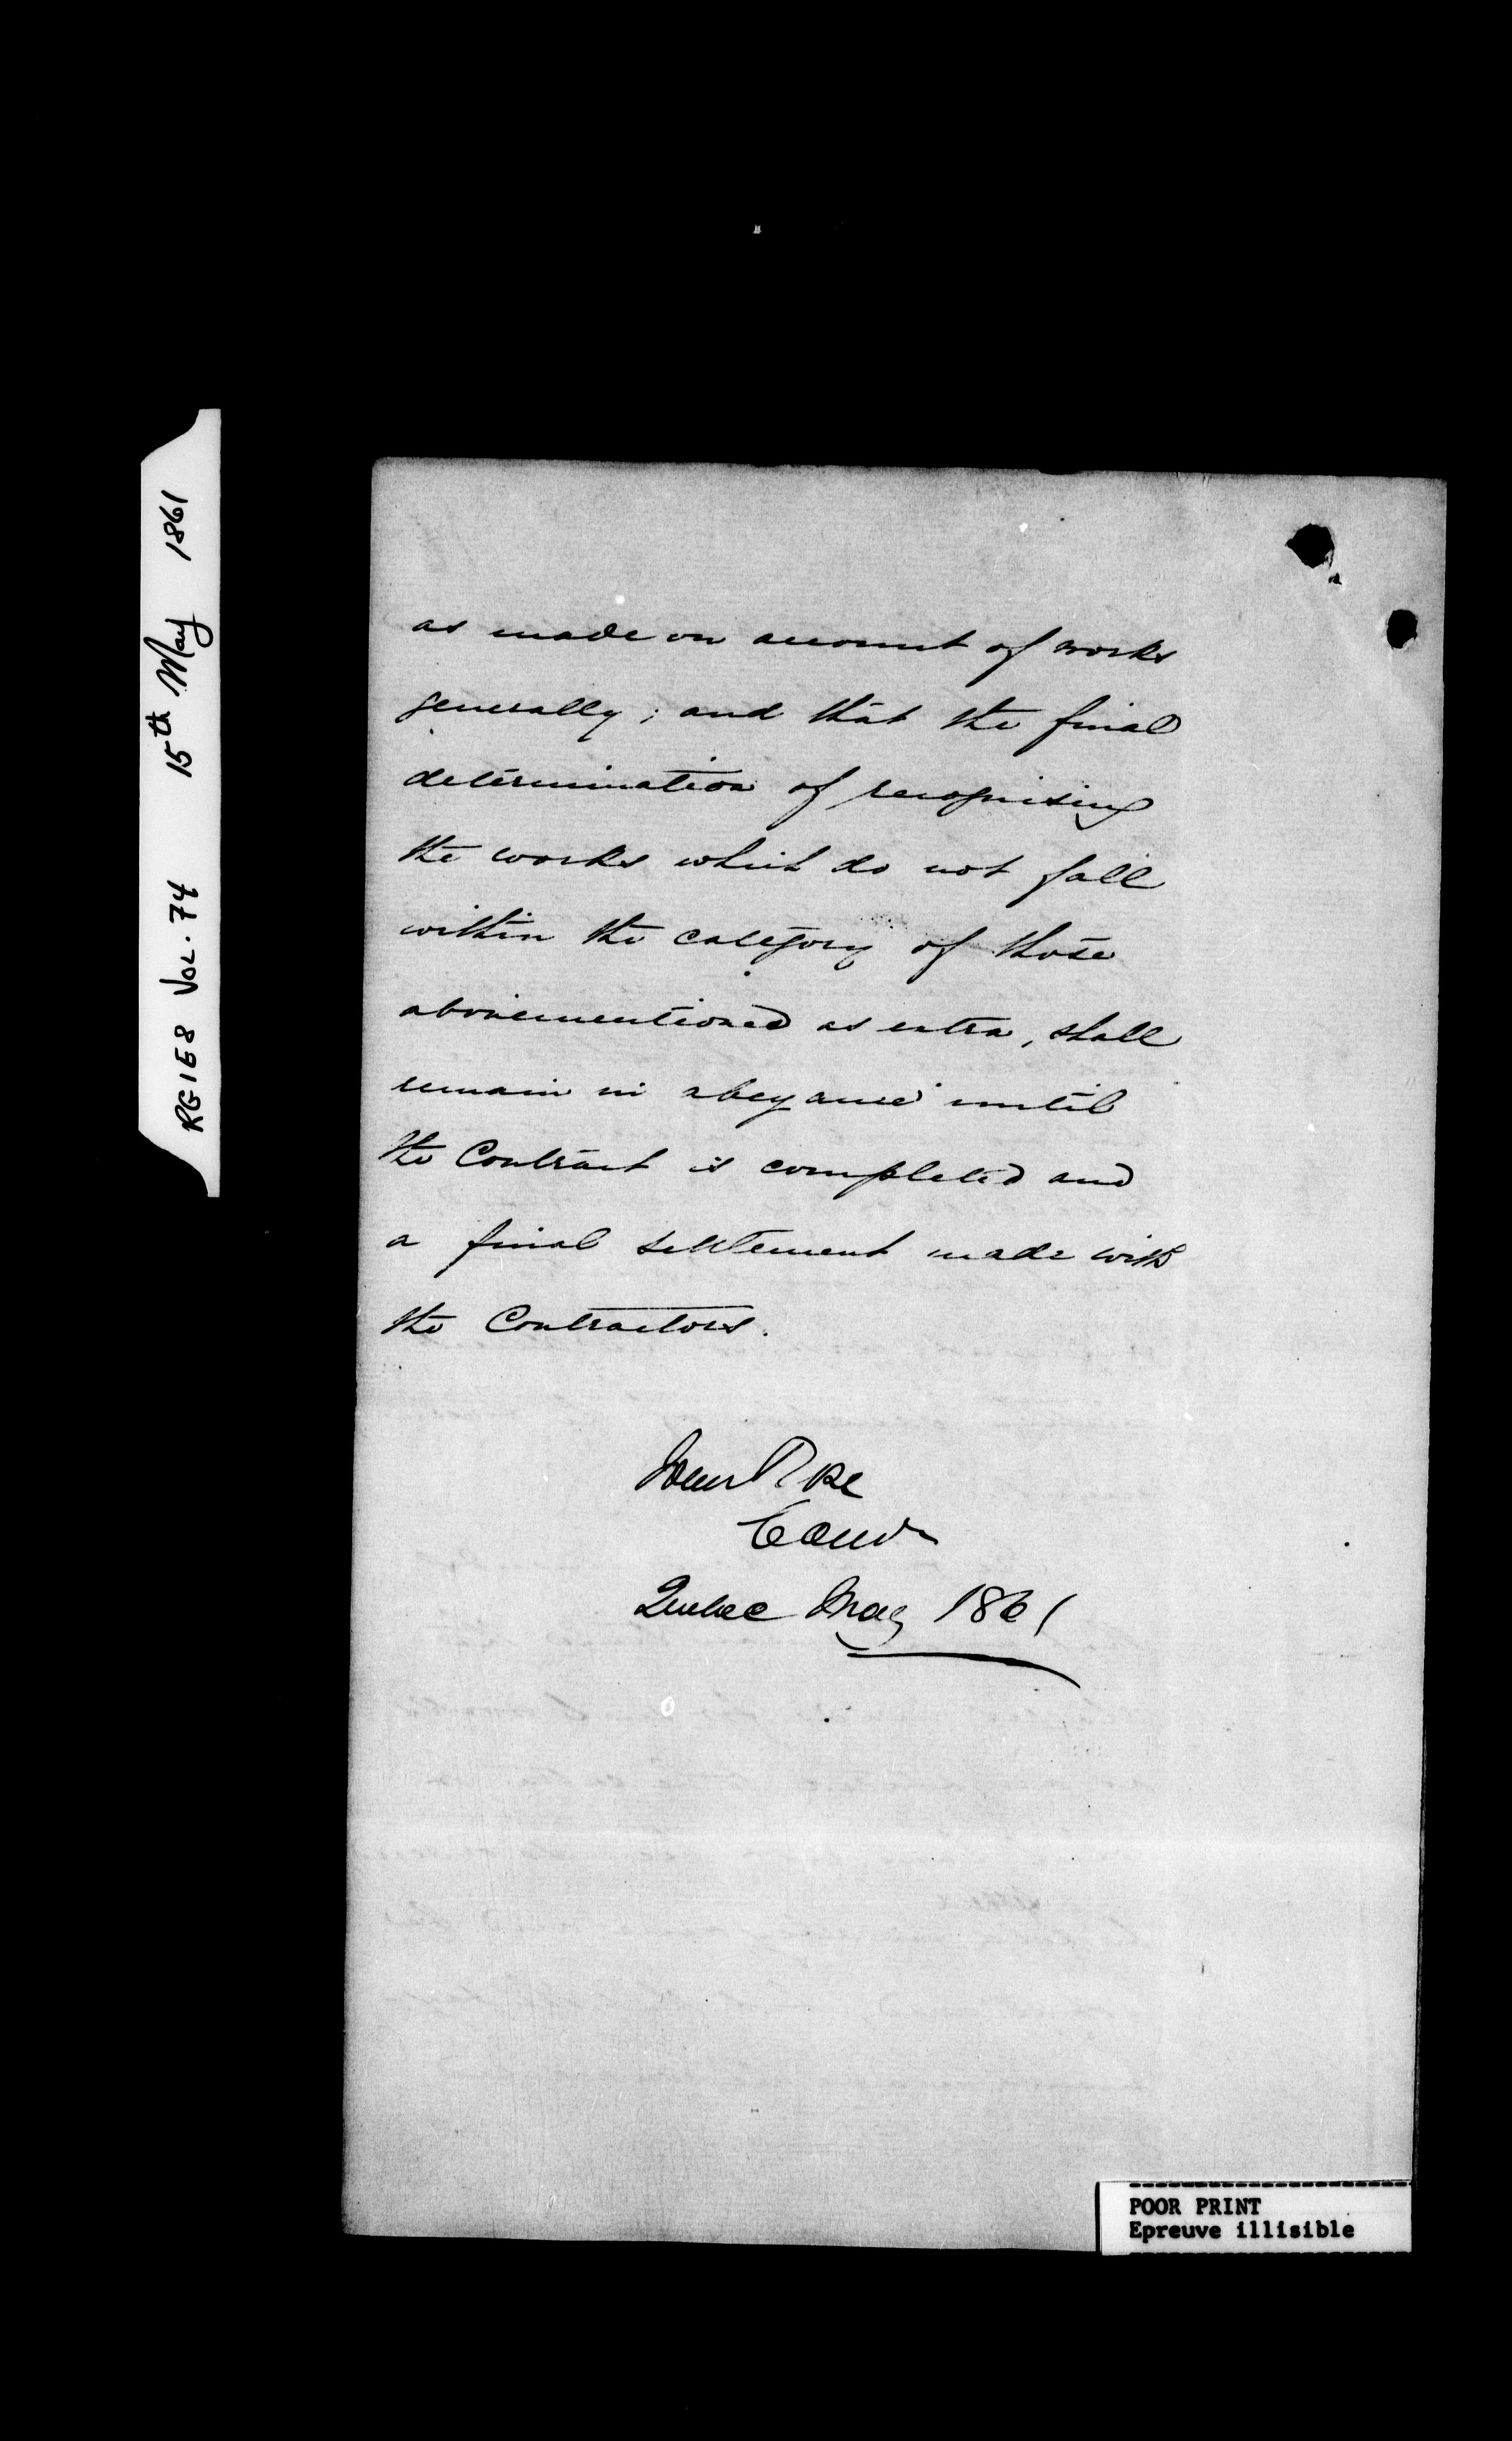 RG1E8 VOL. 74 15th May 1861
as made on account of works
generally; and that the final
determination of recognising
the works which do not fall
within the category of those
abovementioned as extra, shall
remain in abeyance until
the Contract is completed and
a final settlement made with
the Contractors.
John Rose
Comr
Quebec May 1861
POOR PRINT
Epreuve illisible